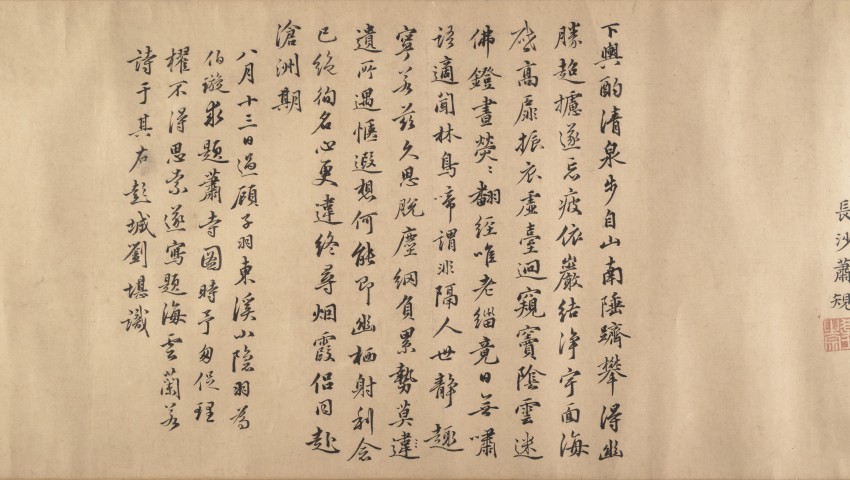 長沙蕭規
下輿酌清泉步自山南陲躋攀得幽
勝超攄遂忘疲依巖結淨宇面海
啓高扉振衣虛臺迥窺竇陰雲迷
佛鐙晝熒〻翻經唯老緇竟日無嘯
語適聞林鳥啼謂非隔人世靜趣
寧若茲久思脫塵網負累勢莫違
遺所遇愜遐想何能即幽栖射利念
已絕徇名心更違終尋烟霞侶同赴
滄洲期
八月十三日過顧子羽東溪小隐羽為
伯璇求題蕭寺圖時予匆促理
櫂不得思索遂寫題海雲蘭若
詩于其右彭城劉堪識